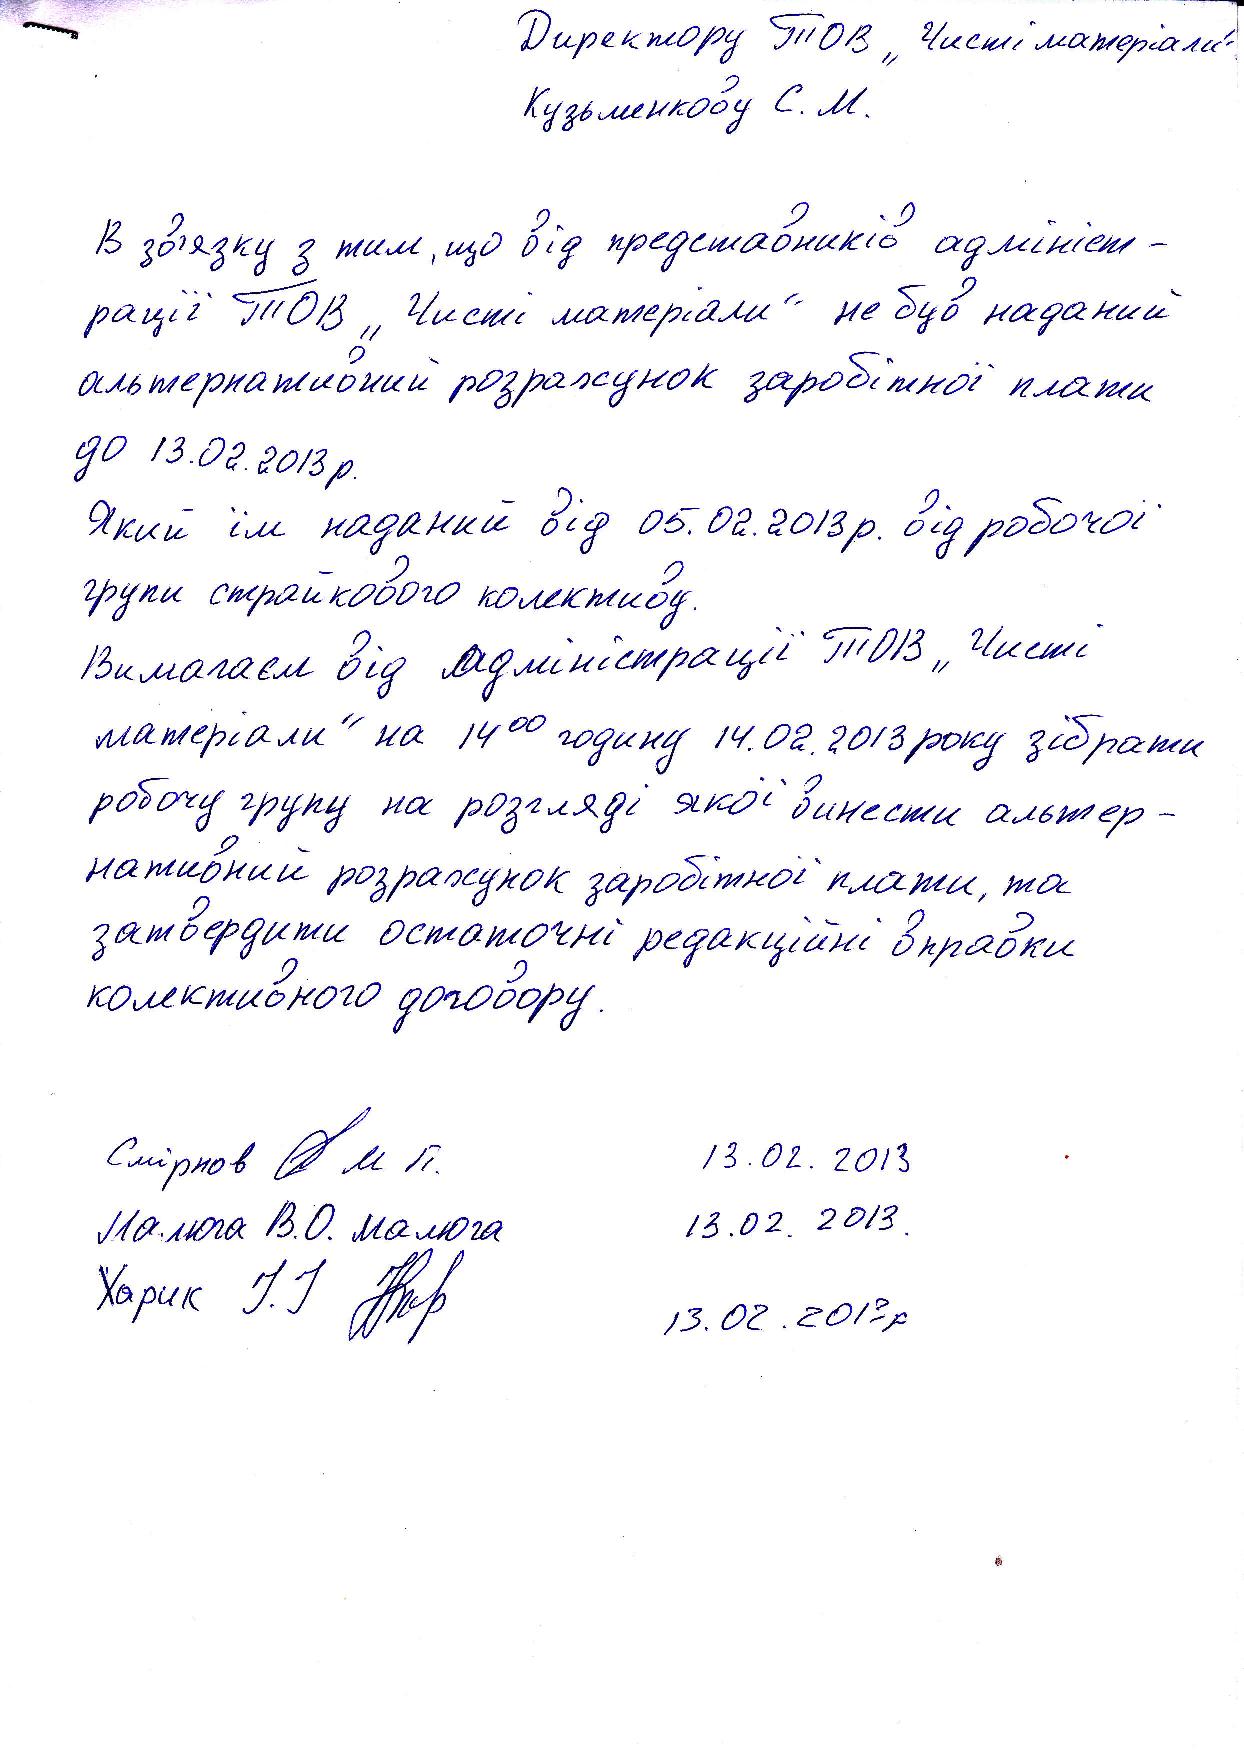 Директору ТОВ „Чисті матеріали"
Кузьменкову С. М.
В зв'язку з тим, що від представників адмініст-
рації ТОВ „Чисті матеріали" не був наданий
альтернативний розрахунок заробітної плати
до 13.02.2013р.
Який їм наданий від 05.02.2013р. від робочої
групи страйкового колективу.
Вимагаєм від Адміністрації ТОВ „Чисті
матеріали" на 14⁰⁰ годину 14.02.2013 року зібрати
робочу групу на розгляді якої винести альтер-
нативний розрахунок заробітної плати, та
затвердити остаточні редакційні вправки
колективного договору.
Смірнов М П. 13.02.2013
Малюга В.О. малюга 13.02.2013.
Харик І.І 13.02.2013р